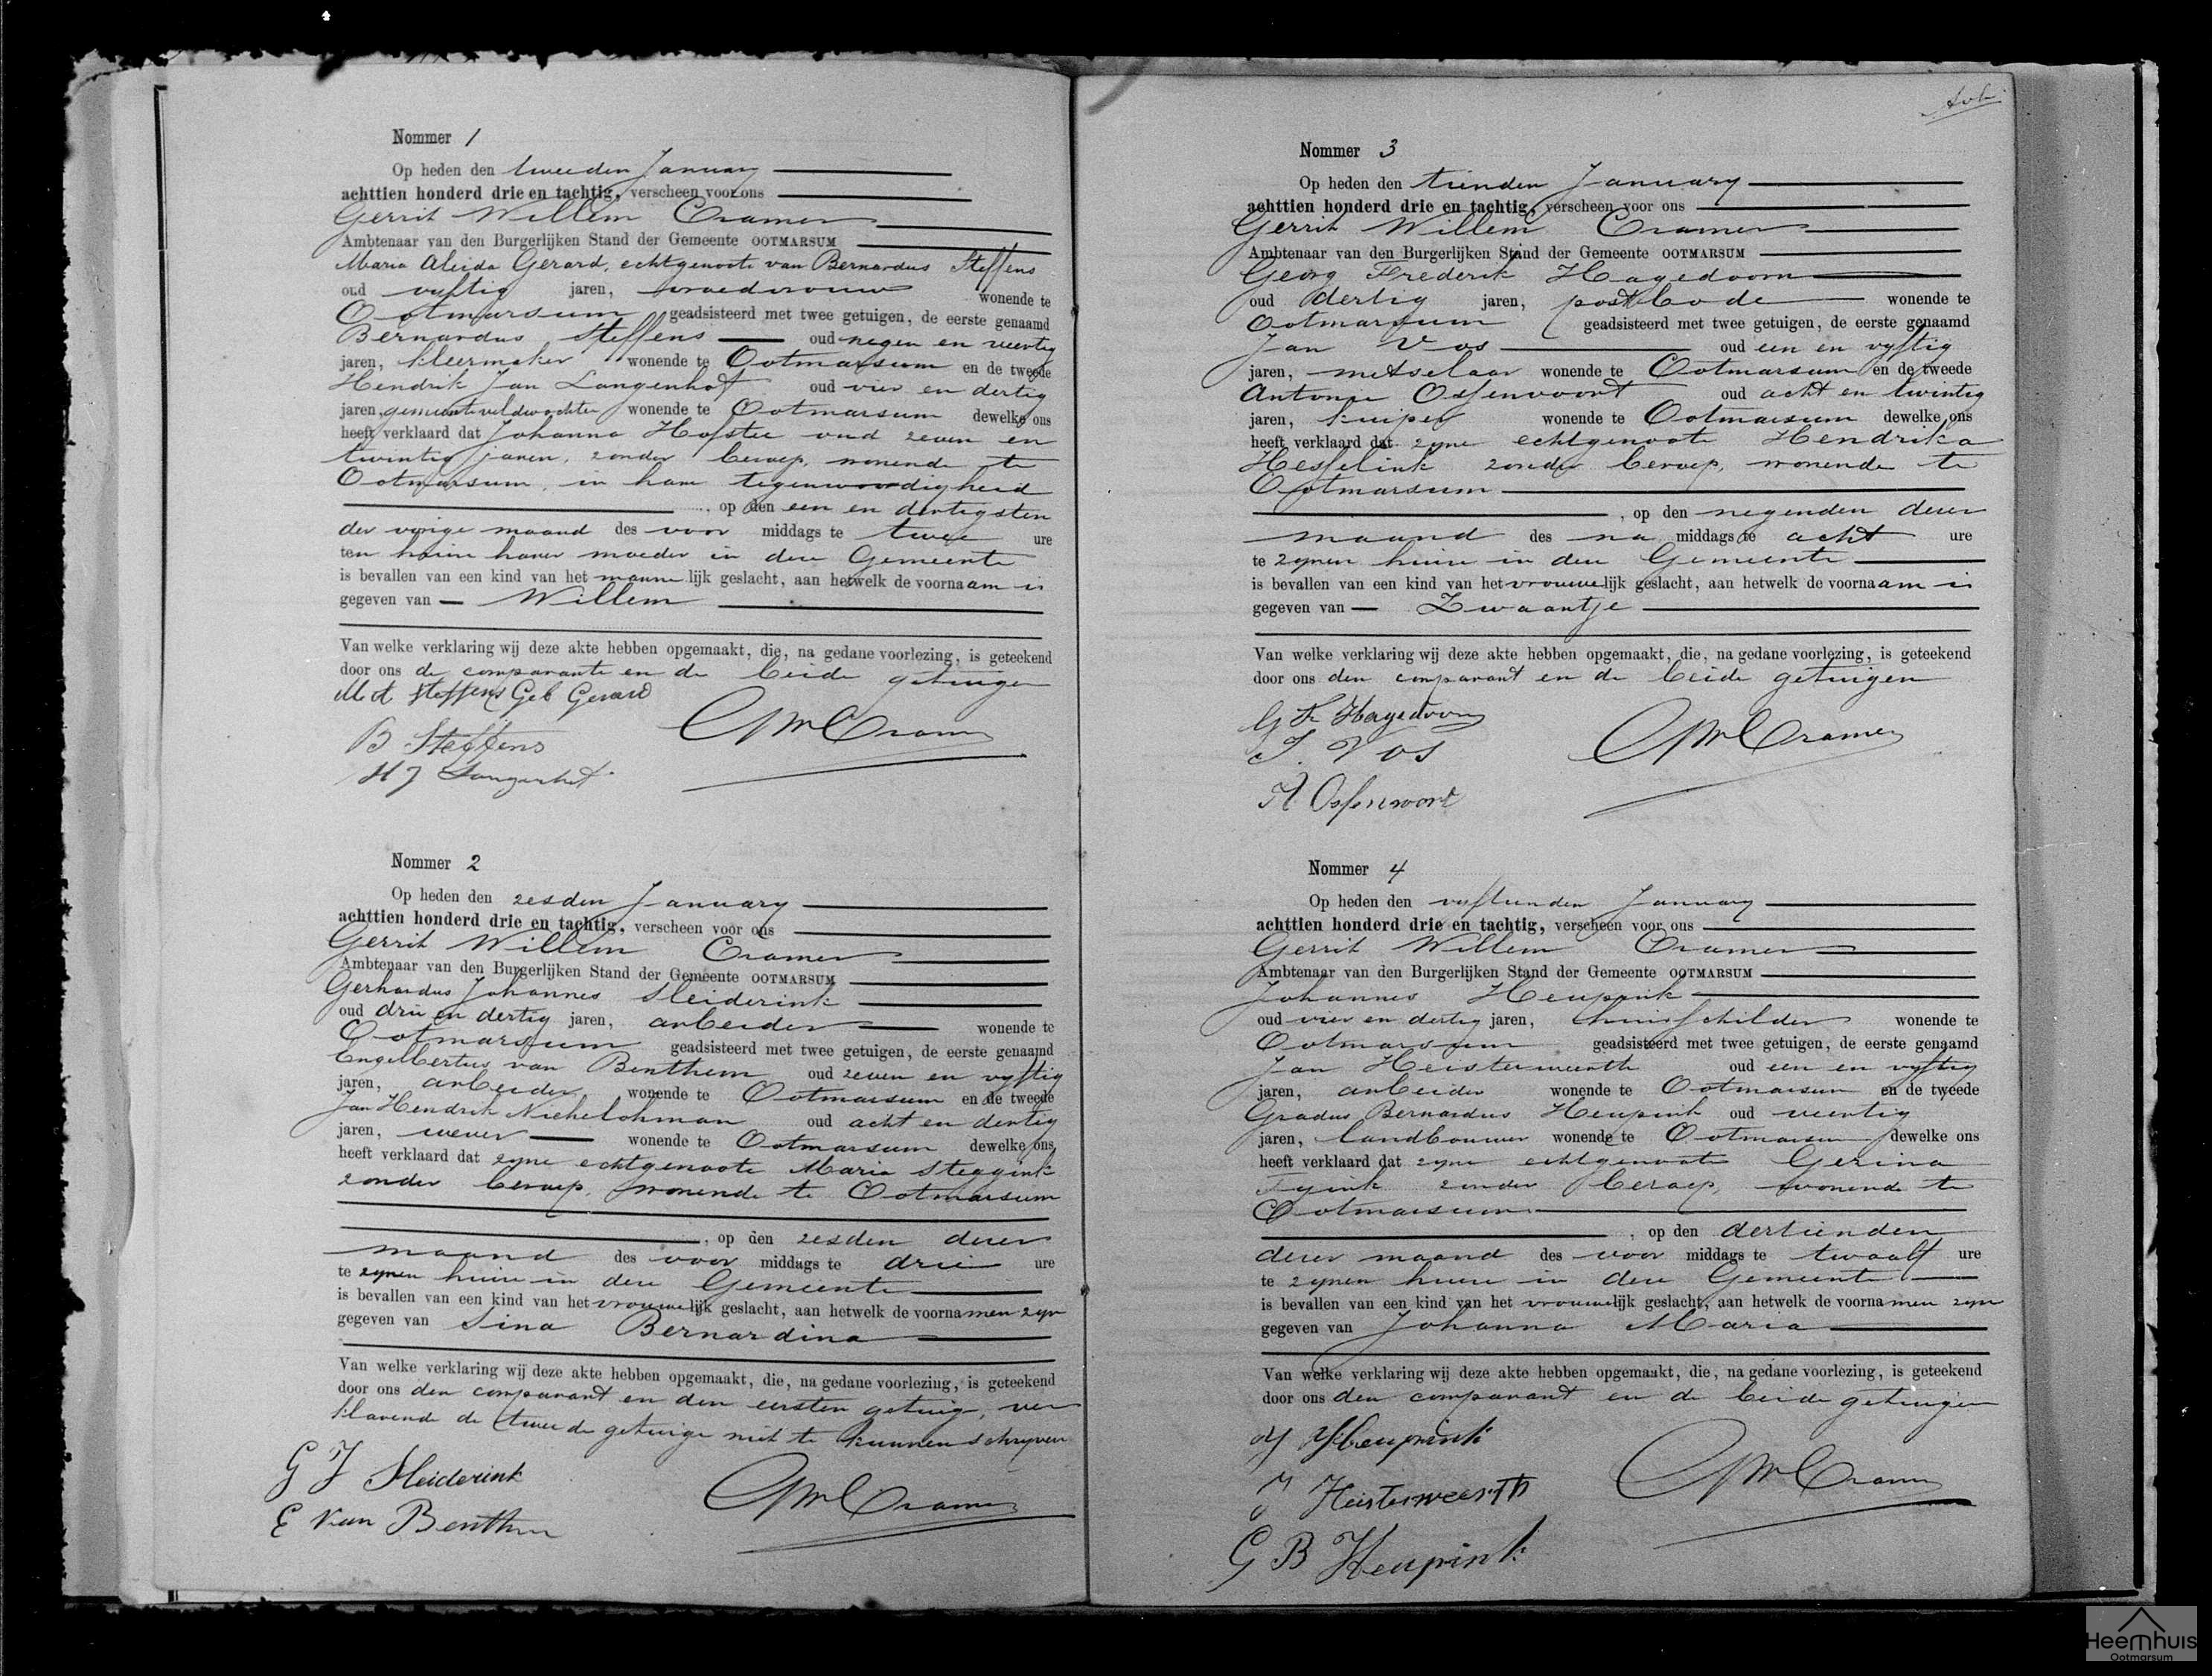 Nommer 1
Op heden den tweeden January
achttien honderd drie en tachtig, verscheen voor ons
Gerrit Willem Cramer
Ambtenaar van den Burgerlijken Stand der Gemeente OOTMARSUM
Maria Aleida Gerard, echtgenoote van Bernardus Steffens
oud vyftig jaren, vroedvrouw wonende te
Ootmarsum geadsisteerd met twee getuigen, de eerste genaamd
Bernardus Steffens oud negen en veertig
jaren, kleermaker wonende te Ootmarsum en de tweede
Hendrik Jan Langenhof oud vier en dertig
jaren, gemeenteveldwachter wonende te Ootmarsum dewelke ons
heeft verklaard dat Johanna Hofstee oud zeven en
twintig jaren, zonder beroep, wonende te
Ootmarsum, in hare tegenwoordigheid
, op den een en dertigsten
der vorige maand des voor middags te twee ure
ten huize harer moeder in deze Gemeente
is bevallen van een kind van het manne lijk geslacht, aan hetwelk de voornaam is
gegeven van Willem
Van welke verklaring wij deze akte hebben opgemaakt, die, na gedane voorlezing, is geteekend
door ons de comparante en de beide getuigen
M A Steffens Geb Gerard
B Steffens
GW Cramer
H J Langenhof
Nommer 2
Op heden den zesden January
achttien honderd drie en tachtig, verscheen voor ons
Gerrit Willem Cramer
Ambtenaar van den Burgerlijken Stand der Gemeente OOTMARSUM
Gerhardus Johannes Sleiderink
oud drie en dertig jaren, arbeider wonende te
Ootmarsum geadsisteerd met twee getuigen, de eerste genaamd
Engelbertus van Benthem oud zeven en vyftig
jaren, arbeider wonende te Ootmarsum en de tweede
Jan Hendrik oud acht en dertig
jaren, wever wonende te Ootmarsum dewelke ons
heeft verklaard dat zyne echtgenoote Maria Steggink
zonder beroep, wonende te Ootmarsum
, op den zesden dezer
maand des voor middags te drie ure
te zynen huize in deze Gemeente
is bevallen van een kind van het vrouwelijk geslacht, aan hetwelk de voornamen zyn
gegeven van Sina Bernardina
Van welke verklaring wij deze akte hebben opgemaakt, die, na gedane voorlezing, is geteekend
door ons den comparant en den eersten getuige, ver
klarende de tweede getuige niet te kunnen schryven
G J Sleiderink
E van Benthem
GW Cramer
Nommer 3
Op heden den tienden January
achttien honderd drie en tachtig, verscheen voor ons
Gerrit Willem Cramer
Ambtenaar van den Burgerlijken Stand der Gemeente OOTMARSUM
Georg Frederik Hagedoorn
oud dertig jaren, postbode wonende te
Ootmarsum geadsisteerd met twee getuigen, de eerste genaamd
Jan Vos oud een en vyftig
jaren, metselaar wonende te Ootmarsum en de tweede
Antonie Ossenvoort oud acht en twintig
jaren, kuiper wonende te Ootmarsum dewelke ons
heeft verklaard dat zyne echtgenoote Hendrika
Hesselink zonder beroep, wonende te
Ootmarsum
, op den negenden dezer
maand des na middags te acht ure
te zynen huize in deze Gemeente
is bevallen van een kind van het vrouwelijk geslacht, aan hetwelk de voornaam is
gegeven van Zwaantje
Van welke verklaring wij deze akte hebben opgemaakt, die, na gedane voorlezing, is geteekend
door ons den comparant en de beide getuigen
G F Hagedoorn
J. Vos
GW Cramer
A Ossenvoort
Nommer 4
Op heden den vyftienden January
achttien honderd drie en tachtig, verscheen voor ons
Gerrit Willem Cramer
Ambtenaar van den Burgerlijken Stand der Gemeente OOTMARSUM
Johannes Heupink
oud vier en dertig jaren, huisschilder wonende te
Ootmarsum geadsisteerd met twee getuigen, de eerste genaamd
Jan Heisterweerth oud een en vyftig
jaren, arbeider wonende te Ootmarsum en de tweede
Gradus Bernardus Heupink oud veertig
jaren, landbouwer wonende te Ootmarsum dewelke ons
heeft verklaard dat zyne echtgenoote Gezina
Tyink zonder beroep, wonende te
Ootmarsum
, op den dertienden
dezer maand des voor middags te twaalf ure
te zynen huize in deze Gemeente
is bevallen van een kind van het vrouwelijk geslacht, aan hetwelk de voornamen zyn
gegeven van Johanna Maria
Van welke verklaring wij deze akte hebben opgemaakt, die, na gedane voorlezing, is geteekend
door ons den comparant en de beide getuigen
J Heupink
J Heisterweerth
GW Cramer
G B Heupink
Heemhuis
Ootmarsum